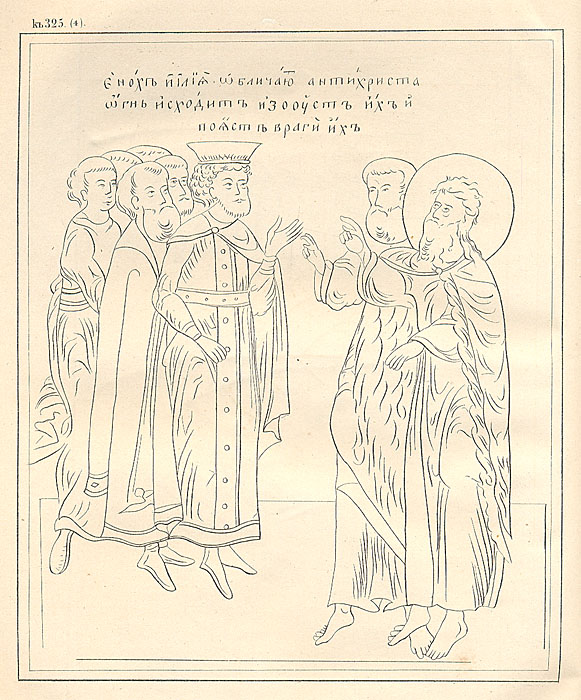 къ 325. (4).
Є҆нѡ́хъ и҆ і҆лїѧ̀ ѡ҆бличаю́т антихриста
ѡ҆́гнь и҆сходитъ изооу҆стъ и҆́хъ и҆
поѧ́стъ враги̑ и҆́хъ